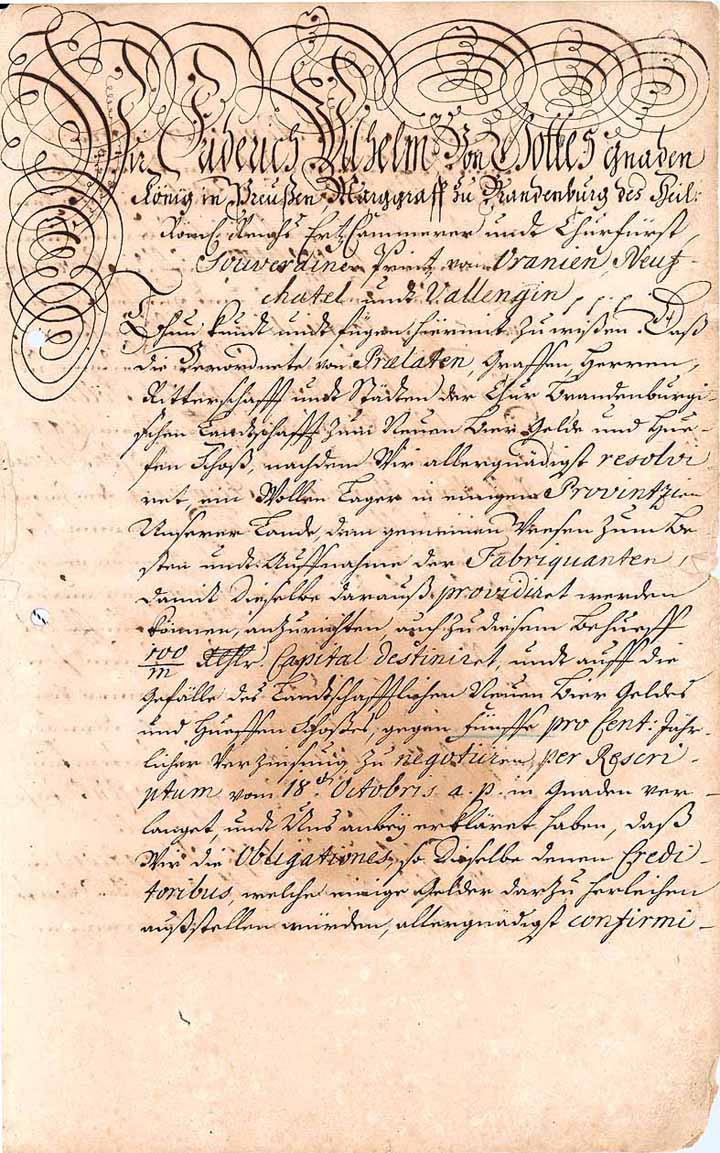 Wir Friderich Wilhelm Von Gottes gnaden
König in Preußen Marggraff zu Brandenburg des Heil:
Römis: Reichs Ertz Cammerer undt Churfürst,
Souverainer Printz von Uranien, Neuf-
chatel undt Vallengin, p. p. p.
Thun kundt undt fügen hiermit zu wißen. Daß
die Verordnete von Prælaten, Graffen, Herren,
Ritterschafft undt Städten der Chur Brandenburgi-
schen Landtschafft zum Neuen Bier Gelde und Hue-
fen Schoß, nachdem Wir allergnädigst resolvi
ret ein Wollen Lager in einigen Provintzien
Unserer Lande, dem gemeinen Weesen zum Be
sten undt Auffnahme der Fabriquanten,
damit dieselbe darauß providiret werden
können, anzurichten, auch zu diesem Behueff
100/m Rthlr. Capital destiniret, undt auff die
Gefälle des Landtschafftlichen Neuen Bier Geldes
und Hueffen Schoßes, gegen fünffe pro Cent: Jähr-
licher Verzinsung zu negotiiren, per Rescri-
ptum vom 18. Octobris a. p. in Gnaden ver-
langet, undt Uns anbey erkläret haben, daß
Wir die Obligationes, so dieselbe denen Credi-
toribus, welche einige Gelder darzu herleihen
außstellen würden, allergnädigst confirmi-